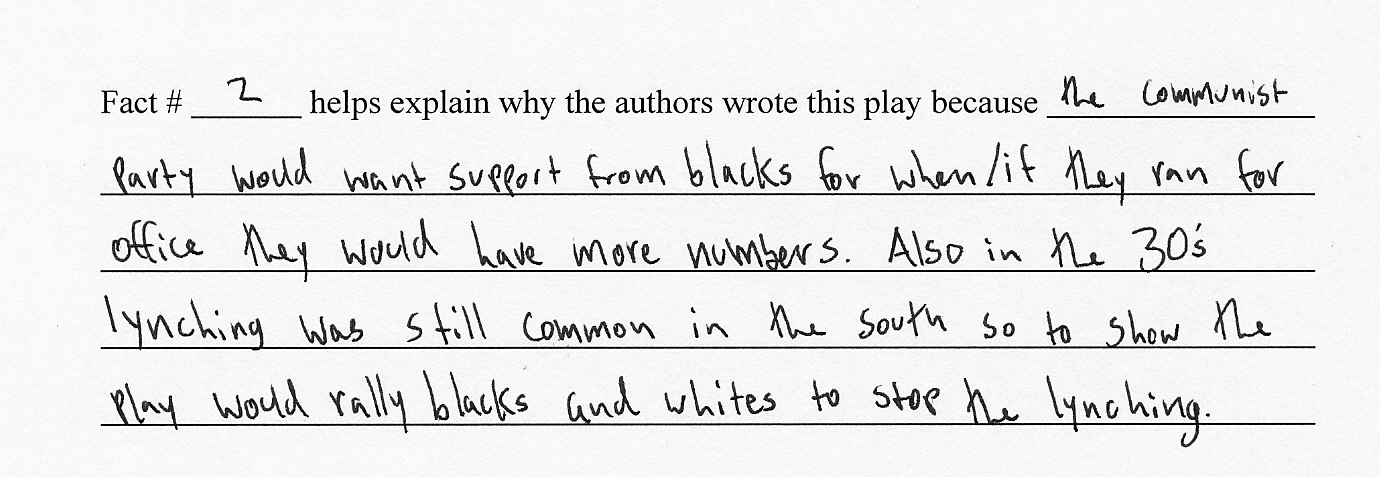 Fact # 2 helps explain why the authors wrote this play because the communist
Party would want support from blacks for when/if they ran for
office they would have more numbers. Also in the 30's
lynching was still common in the south so to show the
play would rally blacks and whites to stop the lynching.